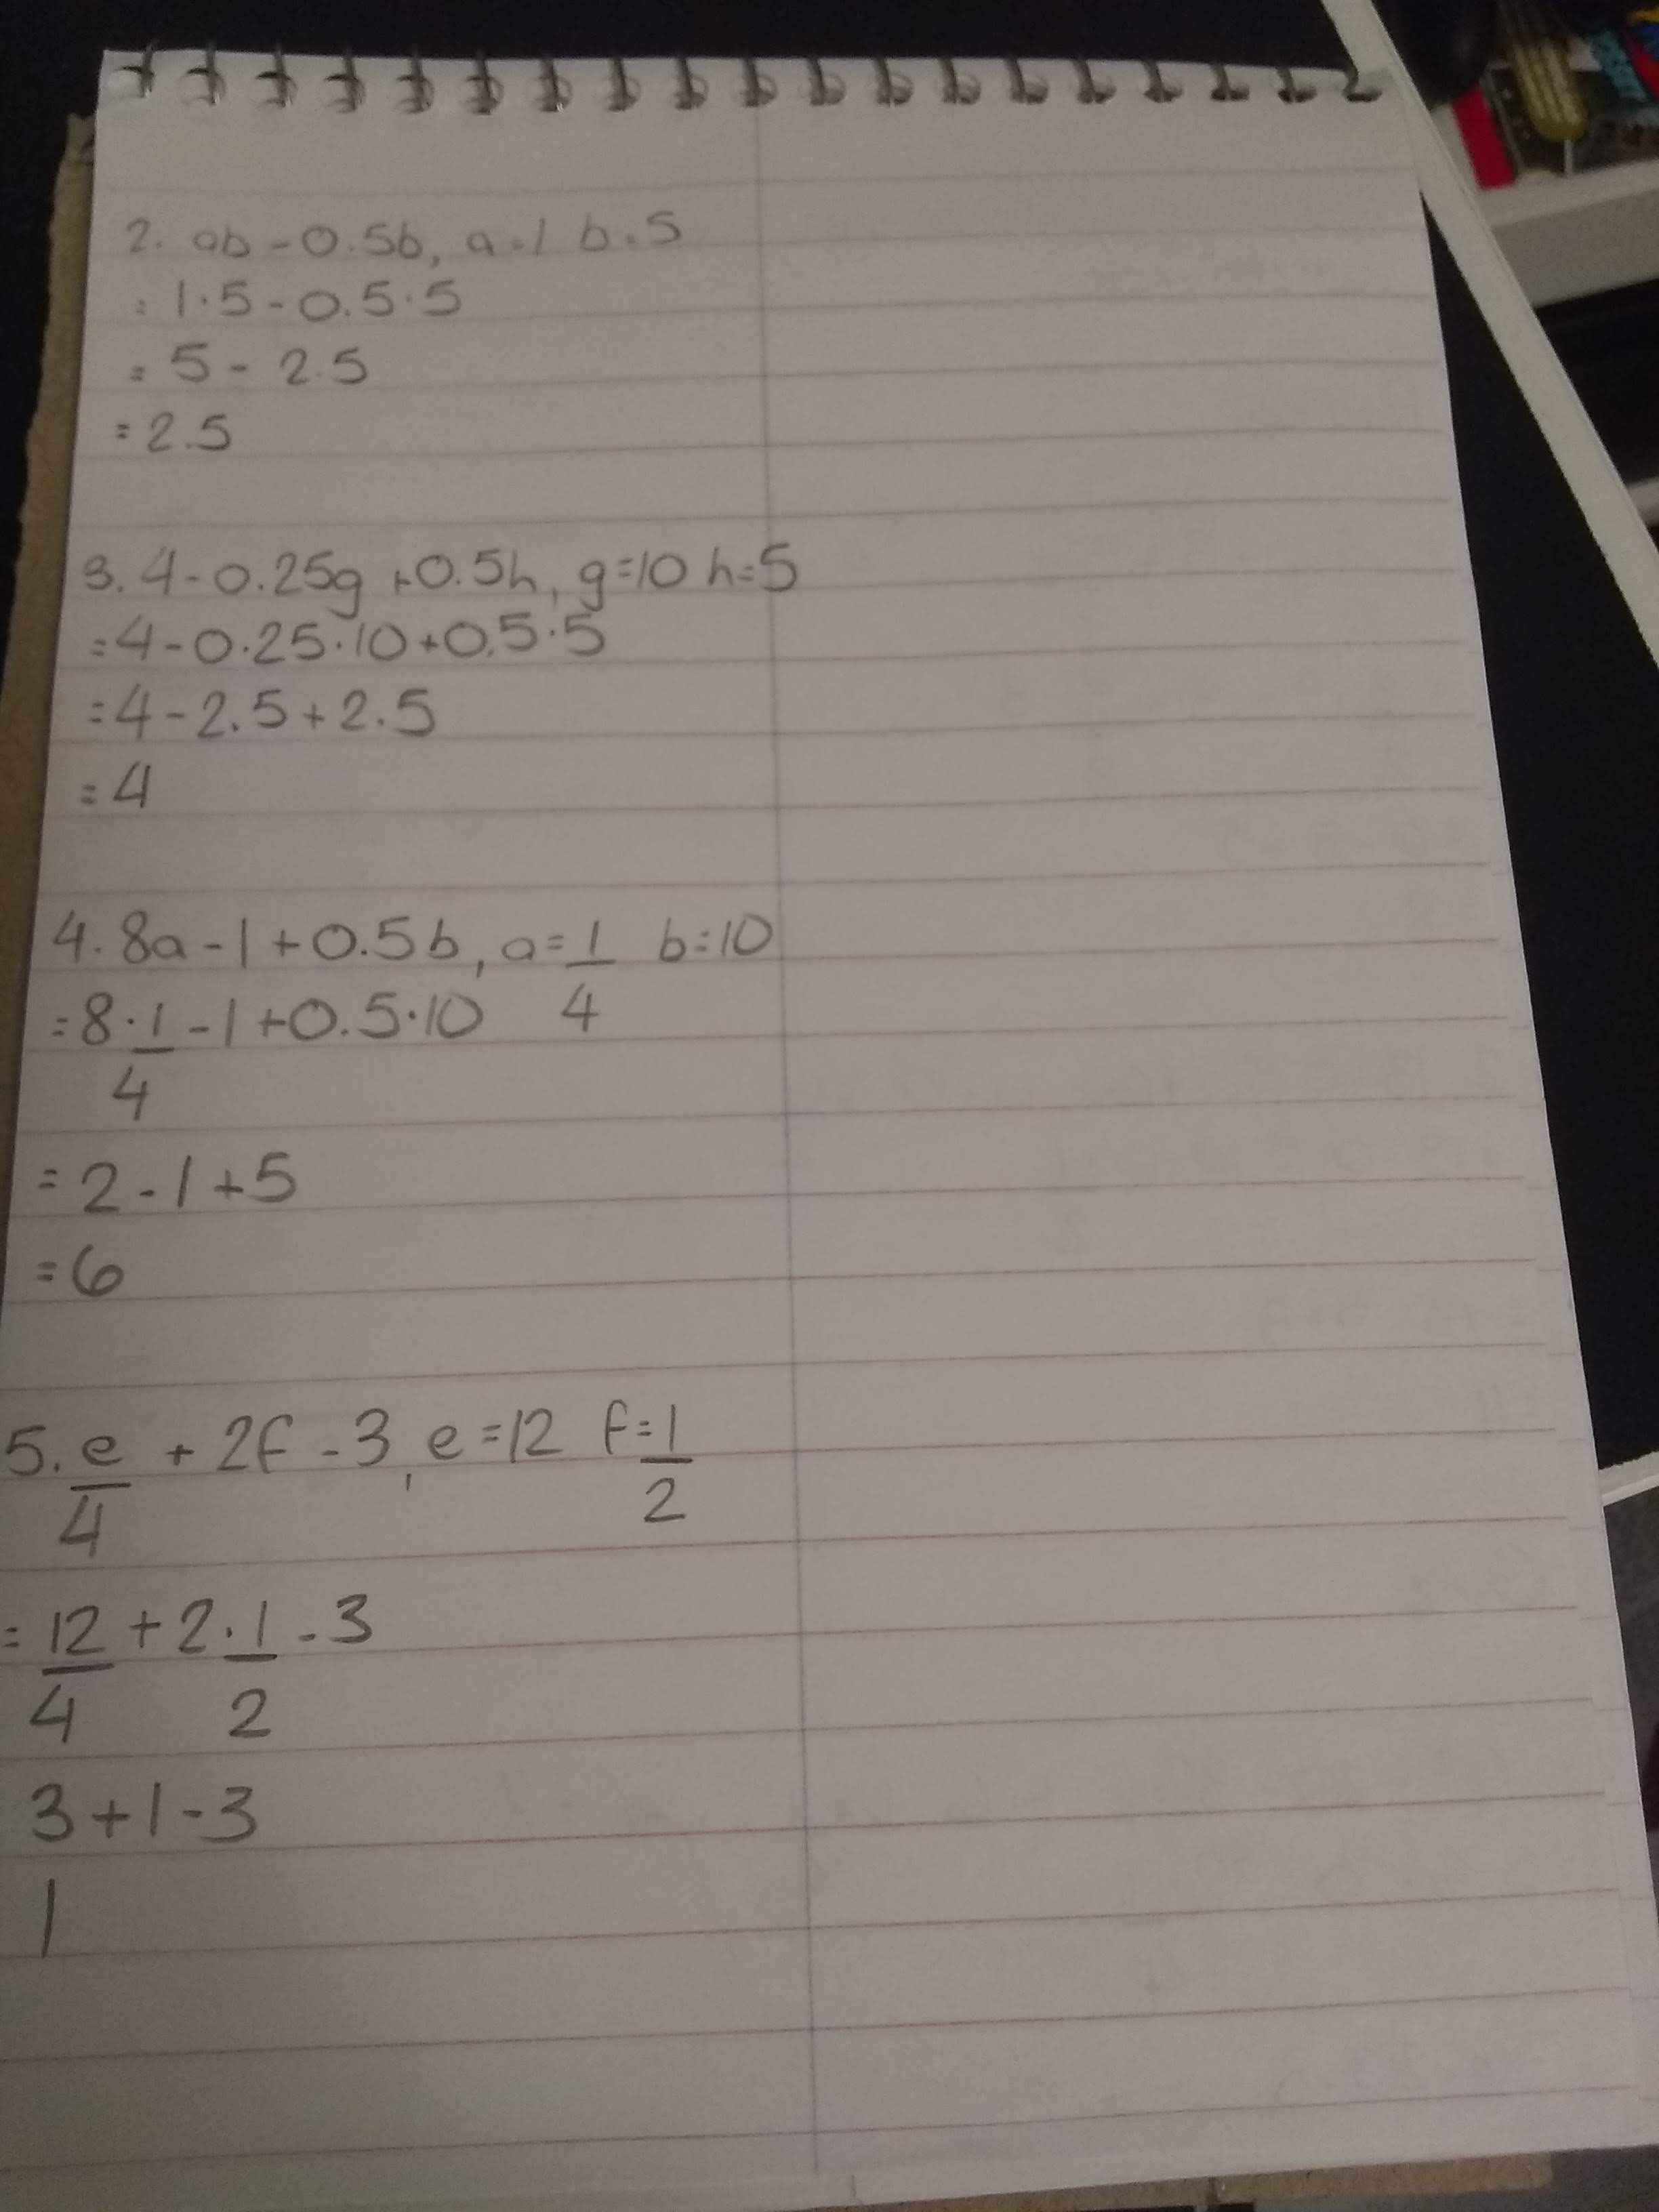 2. ab - 0.5b, a=1 b=5
= 1·5 - 0.5·5
= 5 - 2.5
= 2.5
3. 4 - 0.25g + 0.5h, g=10 h=5
= 4 - 0.25·10 + 0.5·5
= 4 - 2.5 + 2.5
= 4
4. 8a - 1 + 0.5b, a = 1/4 b=10
= 8·1/4 - 1 + 0.5·10
= 2 - 1 + 5
= 6
5. e/4 + 2f - 3, e=12 f=1/2
= 12/4 + 2·1/2 - 3
3 + 1 - 3
1